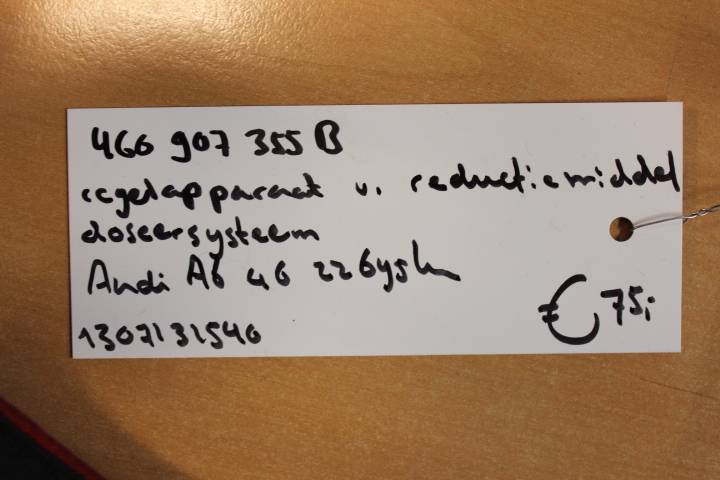 4G0 907 355 B
regelapparaat v. reductiemiddel
doseersysteem
Audi A6 4G
1307131540
€ 75,-